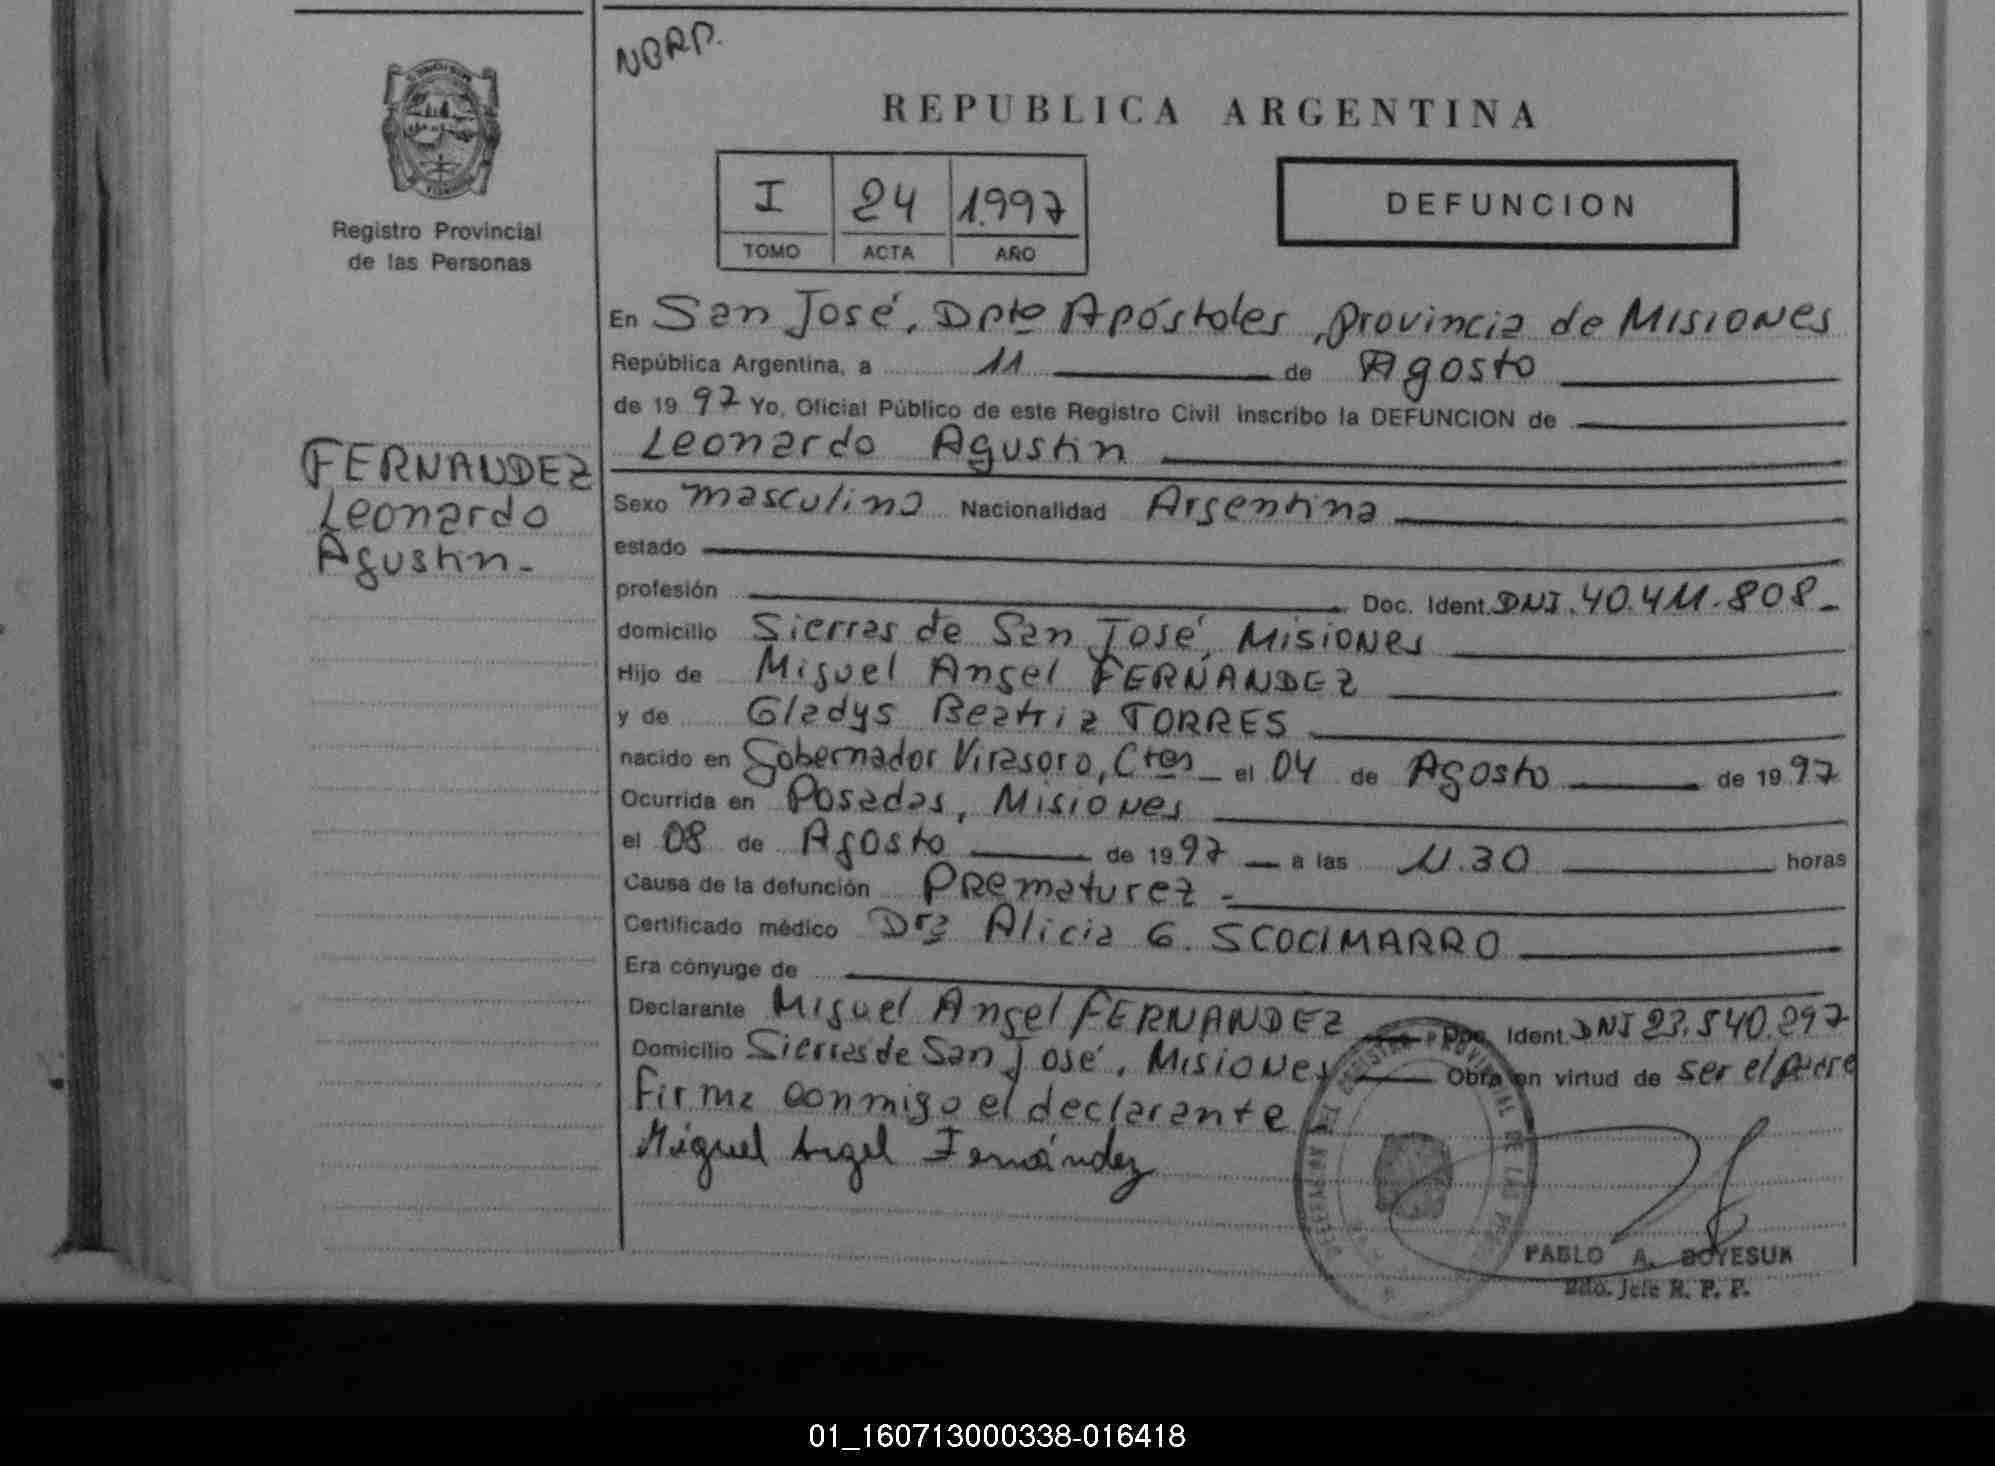 NBRP.
REPUBLICA ARGENTINA
I 24 1.997
TOMO ACTA AÑO
DEFUNCION
Registro Provincial
de las Personas
FERNANDEZ
Leonardo
Agustin.-
En San José, Dpto Apóstoles, provincia de Misiones
República Argentina, a 11 de Agosto
de 1997 Yo, Oficial Público de este Registro Civil inscribo la DEFUNCION de
Leonardo Agustin
Sexo masculino Nacionalidad Argentina
estado
profesión Doc. Ident. DNI. 40.411.808.-
domicilio Sierras de San José, Misiones
Hijo de Miguel Angel FERNANDEZ
y de Gladys Beatriz TORRES
nacido en Gobernador Virasoro, Ctes el 04 de Agosto de 1997
Ocurrida en Posadas, Misiones
el 08 de Agosto de 1997 a las 11.30 horas
Causa de la defunción Prematurez -
Certificado médico Dra Alicia G. SCOCIMARRO
Era cónyuge de
Declarante Miguel Angel FERNANDEZ Doc. Ident. DNI 23.540.297
Domicilio Sierras de San José, Misiones Obra en virtud de ser el padre
Firma conmigo el declarante
Miguel Angel Fernández
PABLO A. BOYESUK
Jefe R. P. P.
01_160713000338-016418